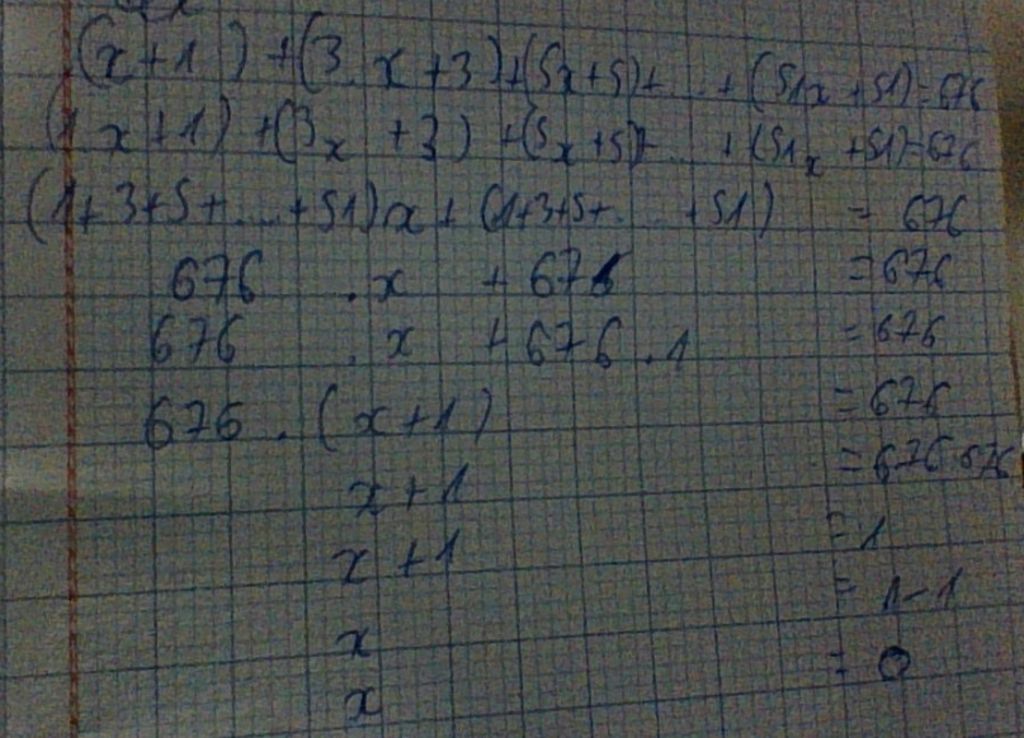 (x+1) + (3.x+3)+(5x+5)+...+(51x+51)=676
(1x+1)+(3x+3)+(5x+5)+...+(51x+51)=676
(1+3+5+...+51)x+(1+3+5+...+51) = 676
676 . x + 676 = 676
676 . x + 676 . 1 = 676
676 . (x+1) = 676
x+1 = 676:676
x+1 = 1
x = 1-1
x = 0